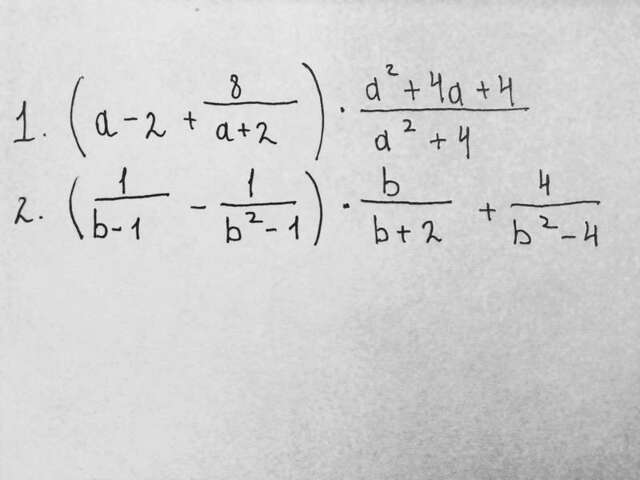 1. (a - 2 + 8/(a+2)) · (a² + 4a + 4)/(a² + 4)
2. (1/(b-1) - 1/(b² - 1)) · b/(b+2) + 4/(b² - 4)